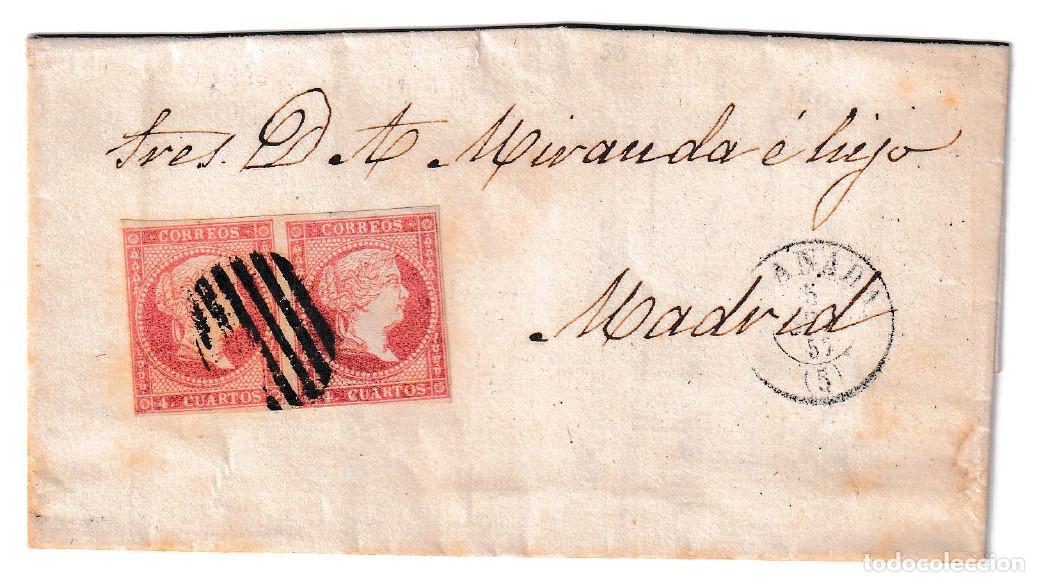 Sres. D A Miranda é hijo
CORREOS CORREOS
Madrid
5
57
(5)
4 CUARTOS 4 CUARTOS
todocoleccion